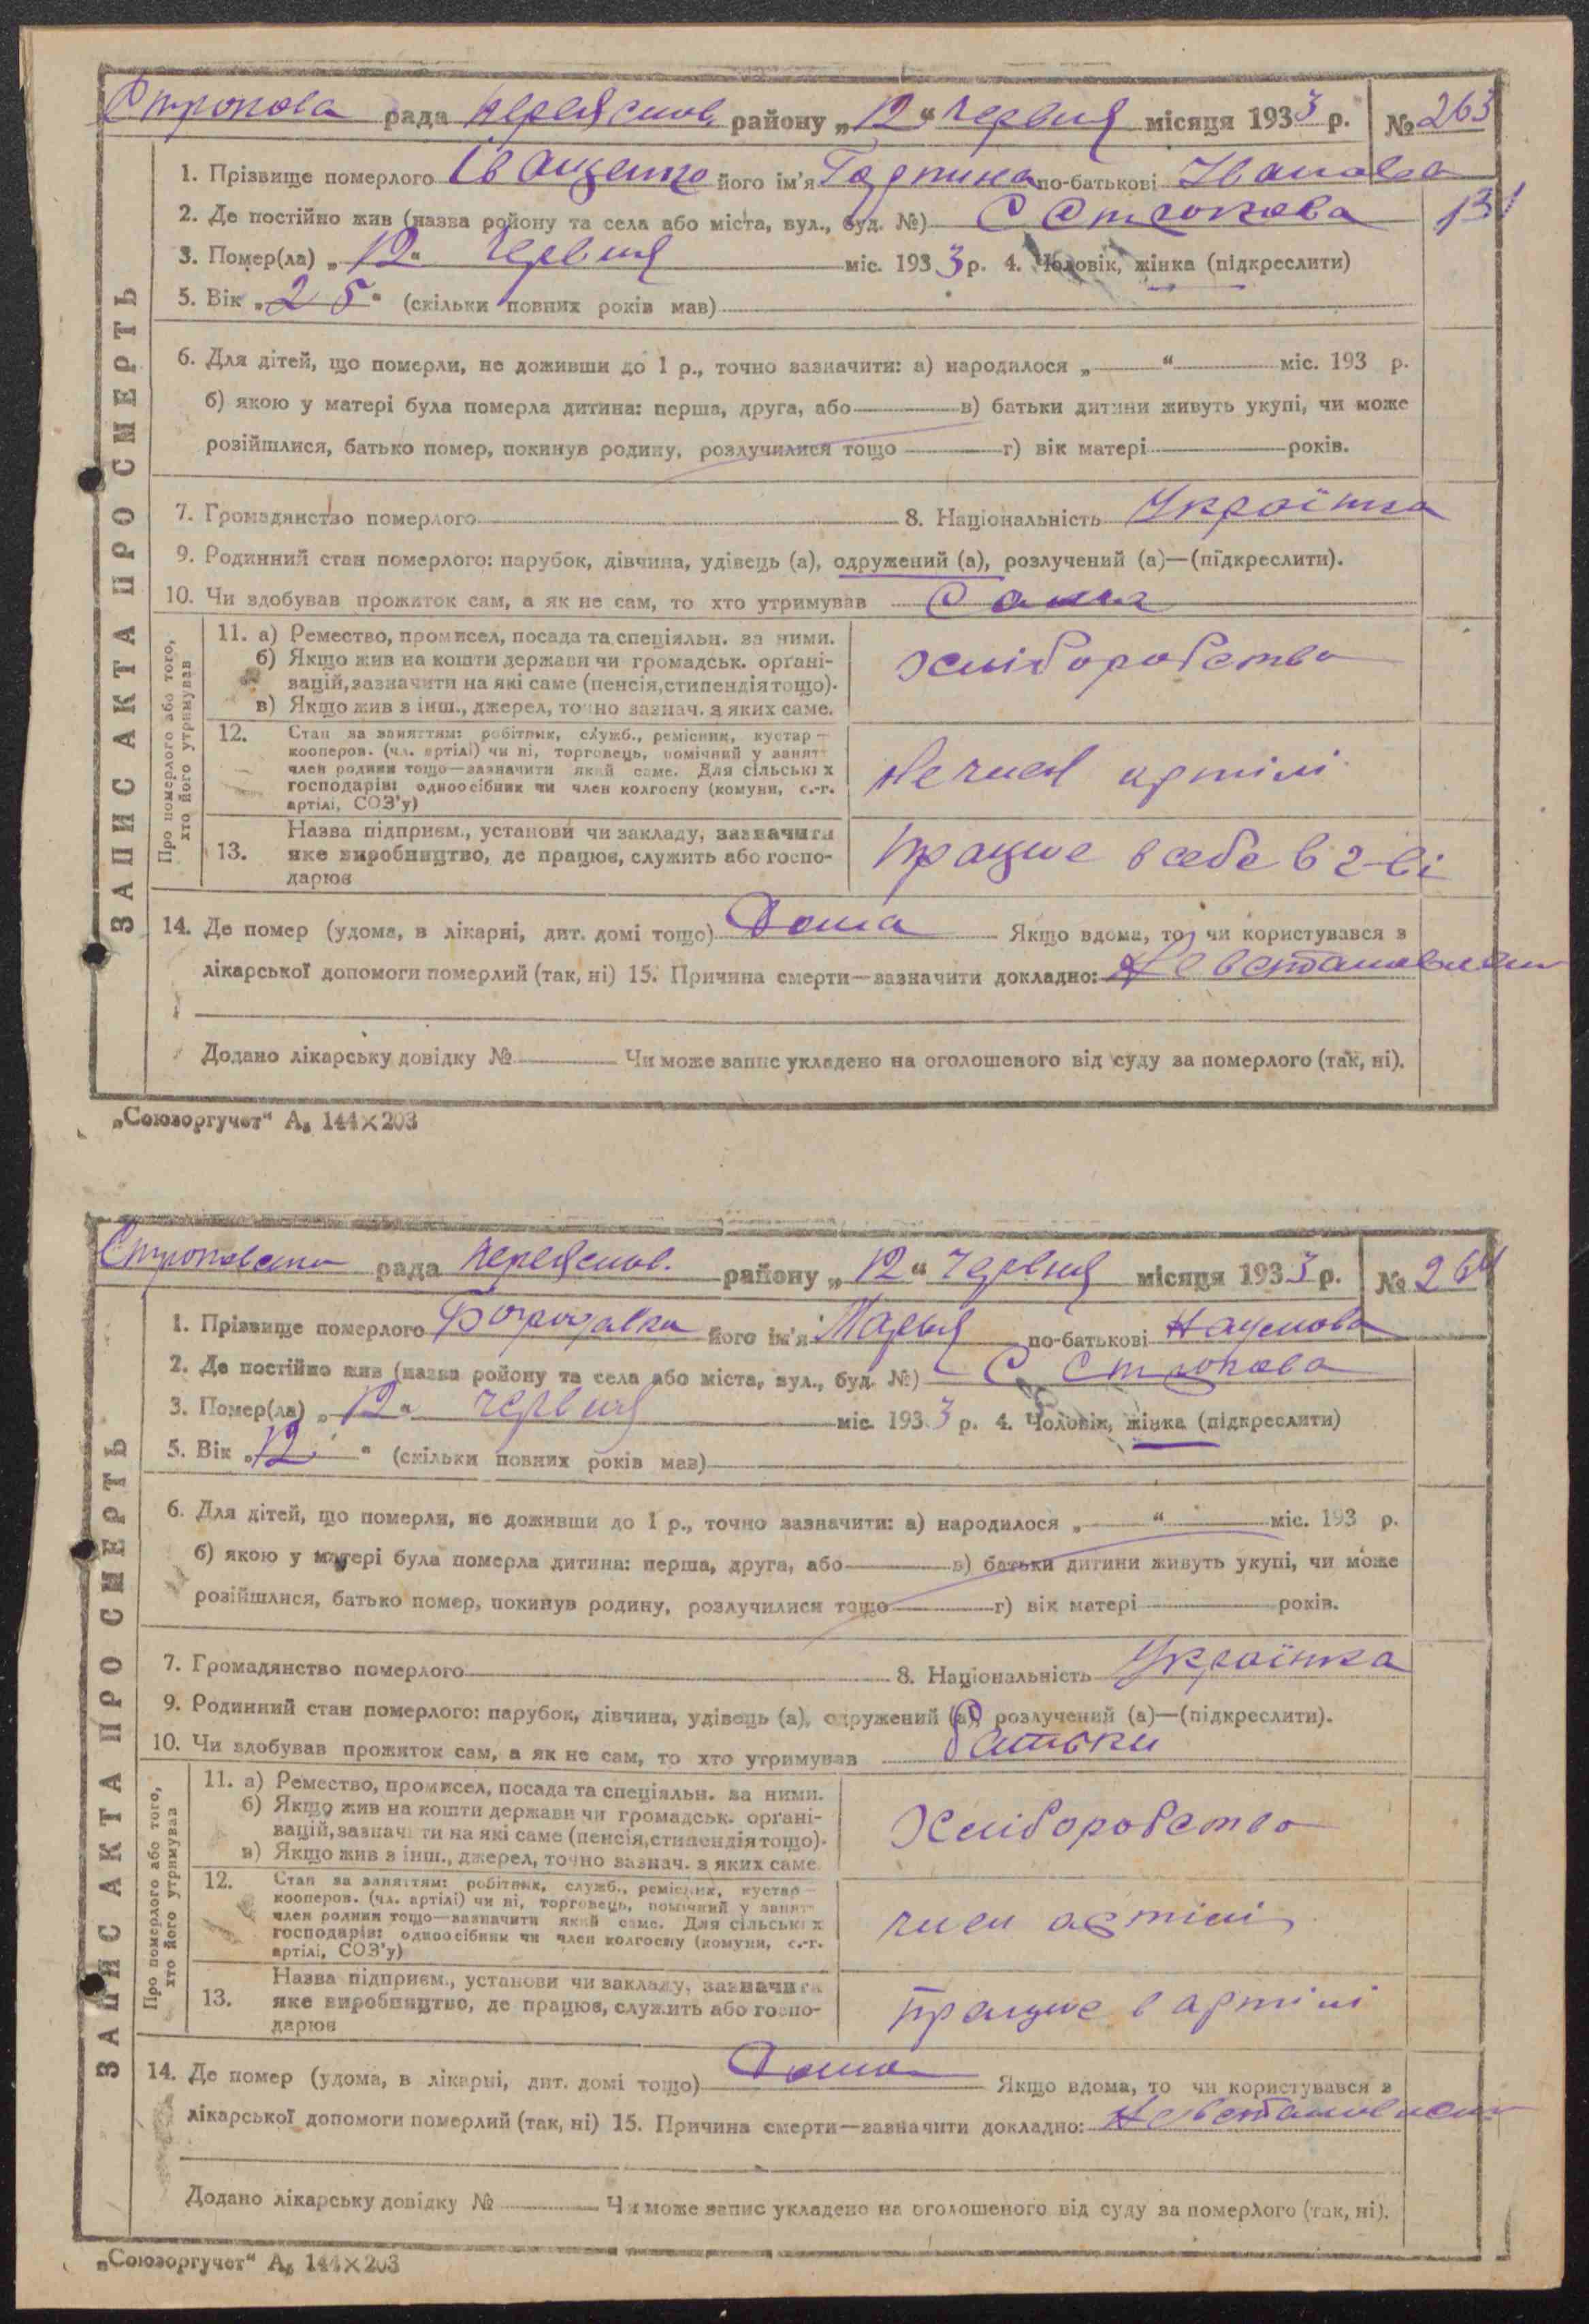 Строкова рада Переяслов. району „12“ червня місяця 1933 р. № 263
1. Прізвище померлого Іващенко його ім'я Горпина по-батькові Іванова
2. Де постійно жив (назва ройону та села або міста, вул., буд. №) С Строкова
131
3. Помер(ла) „12“ червня міс. 1933 р. 4. Чоловік, жінка (підкреслити)
5. Вік „25“ (скільки повних років мав)
6. Для дітей, що померли, не доживши до 1 р., точно зазначити: а) народилося „ “ міс. 193 р.
б) якою у матері була померла дитина: перша, друга, або в) батьки дитини живуть укупі, чи може
розійшлися, батько помер, покинув родину, розлучилися тощо г) вік матері років.
7. Громадянство померлого 8. Національність Українка
9. Родинний стан померлого: парубок, дівчина, удівець (а), одружений (а), розлучений (а)—(підкреслити).
10. Чи здобував прожиток сам, а як не сам, то хто утримував Сама
ЗАПИС АКТА ПРО СМЕРТЬ
Про померлого або того,
хто його утримував
11. а) Ремество, промисел, посада та спеціяльн. за ними.
б) Якщо жив на кошти держави чи громадськ. органі-
зацій, зазначити на які саме (пенсія, стипендія тощо).
в) Якщо жив з інш., джерел, точно зазнач. з яких саме.
хліборобство
12. Стан за заняттям: робітник, служб., ремісник, кустар —
кооперов. (чл. артілі) чи ні, торговець, помічний у занят-
член родини тощо—зазначити який саме. Для сільських
господарів: одноосібник чи член колгоспу (комуни, с.-г.
артілі, СОЗ'у)
не член артілі
13. Назва підприєм., установи чи закладу, зазначити
яке виробництво, де працює, служить або госпо-
дарює
працює в себе в г-ві
14. Де помер (удома, в лікарні, дит. домі тощо) Дома Якщо вдома, то чи користувався з
лікарської допомоги померлий (так, ні) 15. Причина смерти—зазначити докладно: Не встановлен
Додано лікарську довідку № Чи може запис укладено на оголошеного від суду за померлого (так, ні).
„Союзоргучет“ А₅ 144×203
Строковська рада Переяслов. району „12“ червня місяця 1933 р. № 264
1. Прізвище померлого його ім'я Марья по-батькові Наумова
2. Де постійно жив (назва ройону та села або міста, вул., буд. №) С. Строкова
3. Помер(ла) „12“ червня міс. 1933 р. 4. Чоловік, жінка (підкреслити)
5. Вік „12“ (скільки повних років мав)
6. Для дітей, що померли, не доживши до 1 р., точно зазначити: а) народилося „ “ міс. 193 р.
б) якою у матері була померла дитина: перша, друга, або в) батьки дитини живуть укупі, чи може
розійшлися, батько помер, покинув родину, розлучилися тощо г) вік матері років.
7. Громадянство померлого 8. Національність Українка
9. Родинний стан померлого: парубок, дівчина, удівець (а), одружений (а), розлучений (а)—(підкреслити).
10. Чи здобував прожиток сам, а як не сам, то хто утримував батьки
ЗАПИС АКТА ПРО СМЕРТЬ
Про померлого або того,
хто його утримував
11. а) Ремество, промисел, посада та спеціяльн. за ними.
б) Якщо жив на кошти держави чи громадськ. органі-
зацій, зазначити на які саме (пенсія, стипендія тощо).
в) Якщо жив з інш., джерел, точно зазнач. з яких саме
Хліборобство
12. Стан за заняттям: робітник, служб., ремісник, кустар —
кооперов. (чл. артілі) чи ні, торговець, помічний у занят-
член родини тощо—зазначити який саме. Для сільських
господарів: одноосібник чи член колгоспу (комуни, с.-г.
артілі, СОЗ'у)
член артілі
13. Назва підприєм., установи чи закладу, зазначити
яке виробництво, де працює, служить або госпо-
дарює
працює в артілі
14. Де помер (удома, в лікарні, дит. домі тощо) Дома Якщо вдома, то чи користувався з
лікарської допомоги померлий (так, ні) 15. Причина смерти—зазначити докладно: Не встановлен
Додано лікарську довідку № Чи може запис укладено на оголошеного від суду за померлого (так, ні).
„Союзоргучет“ А₅ 144×203